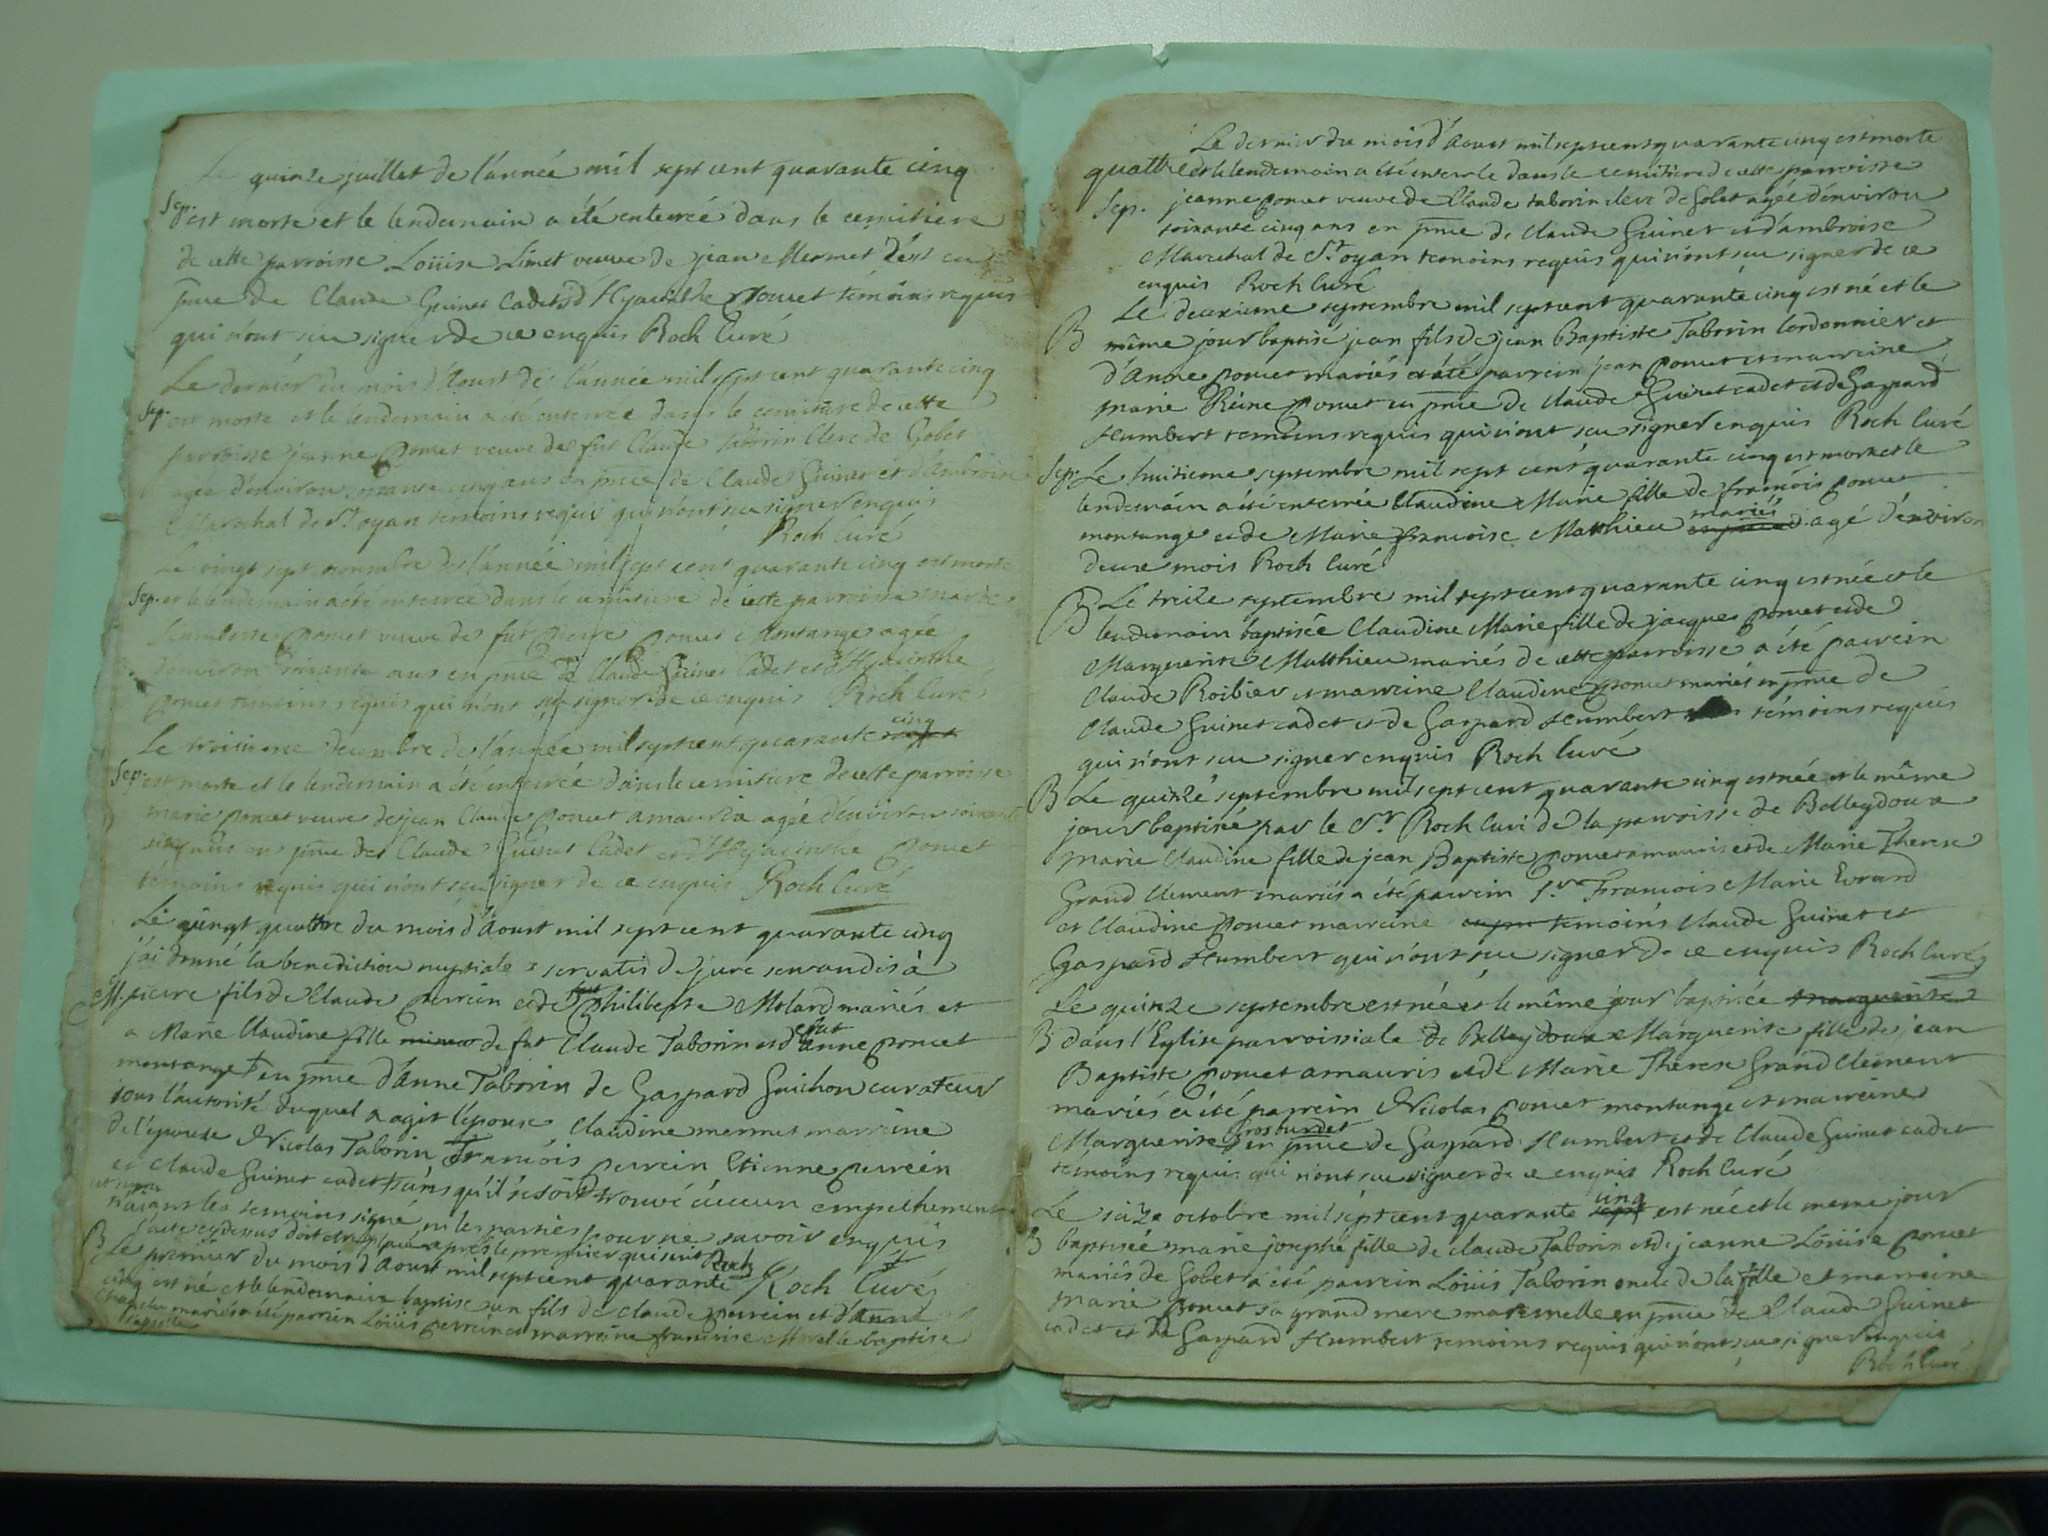 Le quinze juillet de l'année mil sept cent quarante cinq
Sep. est morte et le lendemain a été enterrée dans le cemitiere
de cette parroisse Loüise Limet veuve de jean Mermet
pnce de Claude Guinet Cadet et d'Hyacinthe Poncet temoins requis
qui n'ont sçu signer de ce enquis Roch Curé
Le dernier du mois d'Aoust de l'année mil sept cent quarante cinq
Sep. est morte et le lendemain a été enterrée dans le cemitiere de cette
parroisse jeanne Poncet veuve de fut Claude Taborin Clerc de Gobet
agée d'environ soixante cinq ans en pnce de Claude Guinet et d'Ambroise
Marechal de St oyan temoins requis qui n'ont sçu signer enquis
Roch Curé
Le vingt sept novembre de l'année mil sept cent quarante cinq est morte
Sep. et le lendemain a été enterrée dans le cemitiere de cette parroisse marie
poncet veuve de fut pierre poncet Montange agée
d'environ soixante ans en pnce de Claude Guinet Cadet et d'Hyacinthe
poncet témoins requis qui n'ont sçu signer de ce enquis Roch Curé
Le troisieme decembre de l'année mil sept cent quarante cinq
Sep. est morte et le lendemain a été enterrée dans le cemitiere de cette parroisse
marie poncet veuve de jean Claude poncet amauris agée d'environ soixante
ans en pnce de Claude Guinet Cadet et d'Hyacinthe poncet
témoins requis qui n'ont sçu signer de ce enquis Roch Curé
Le vingt quattre du mois d'Aoust mil sept cent quarante cinq
j'ai donné la benediction nuptiale servatis de jure servandis à
M. pierre fils de Claude perrein et de fut philiberte Molard mariés et
a Marie Claudine fille mineur de fut Claude Taborin et de fut anne poncet
montange en pnce d'Anne Taborin de Gaspard Guichon curateur
sous l'autorité duquel a agit l'epouse Claudine mermet marreine
de l'epouse Nicolas Taborin François perrein Etienne perrein
et Claude Guinet cadet sans qu'il se soit trouvé aucun empechement
n'aiant les temoins signé ni les parties pour ne savoir enquis
l'acte cydessus doit etre placé après le premier qui suit Roch
Roch Curé
B Le premier du mois d'Aoust mil sept cent quarante
cinq est né et le lendemain baptisé un fils de claude perrein et d'Anne
mariés a été parrein Loüis perrein et marreine françoise Morel le baptisé
Le dernier du mois d'Aoust mil sept cent quarante cinq est morte
quattre et le lendemain a été enterrée dans le cemitiere de cette parroisse
Sep. jeanne poncet veuve de Claude taborin clerc de Gobet agée d'environ
soixante cinq ans en pnce de Claude Guinet et d'ambroise
Marechal de St oyan temoins requis qui n'ont sçu signer de ce
enquis Roch Curé
Le deuxieme septembre mil sept cent quarante cinq est né et le
B même jour baptisé jean fils de jean Baptiste Taborin Cordonnier et
d'Anne poncet mariés et a été parrein jean poncet et marreine
marie Reine poncet en pnce de Claude Guinet cadet et de Gaspard
Humbert temoins requis qui n'ont sçu signer enquis Roch Curé
Sep. Le huitieme septembre mil sept cent quarante cinq est morte et le
lendemain a été enterrée Claudine Marie fille de françois poncet
montange et de Marie françoise Matthieu mariés agé d'environ
deux mois Roch Curé
B Le treize septembre mil sept cent quarante cinq est née et le
lendemain baptisée Claudine Marie fille de jacques poncet et de
Marguerite Matthieu mariés de cette parroisse a été parrein
Claude Roibier et marreine Claudine poncet mariés en pnce de
Claude Guinet cadet et de Gaspard Humbert témoins requis
qui n'ont sçu signer enquis Roch Curé
B Le quinzé septembre mil sept cent quarante cinq est née et le même
jour baptisé par le Sr Roch Curé de la parroisse de Belleydoux
Marie Claudine fille de jean Baptiste poncet amauris et de Marie Therese
Grand Clement mariés a été parrein Sr François Marie Evrard
et Claudine poncet marreine en pn temoins Claude Guinet et
Gaspard Humbert qui n'ont sçu signer de ce enquis Roch Curé
Le quinze septembre est née et le même jour baptisée Marguerite
B dans l'Eglise parroissiale de Belleydoux Marguerite fille de jean
Baptiste poncet amauris et de Marie Therese Grand Clement
mariés a été parrein Nicolas poncet montange et marreine
Marguerite grosurdet en pnce de Gaspard Humbert et de Claude Guinet cadet
temoins requis qui n'ont sçu signer de ce enquis Roch Curé
Le seize octobre mil sept cent quarante sept cinq est née et le meme jour
B baptisée marie josephe fille de claude Taborin et de jeanne Loüise poncet
mariés de Gobet a été parrein Loüis Taborin oncle de la fille et marreine
marie poncet sa grand mere maternelle en pnce de Claude Guinet
cadet et de Gaspard Humbert temoins requis qui n'ont sçu signer enquis
Roch Curé